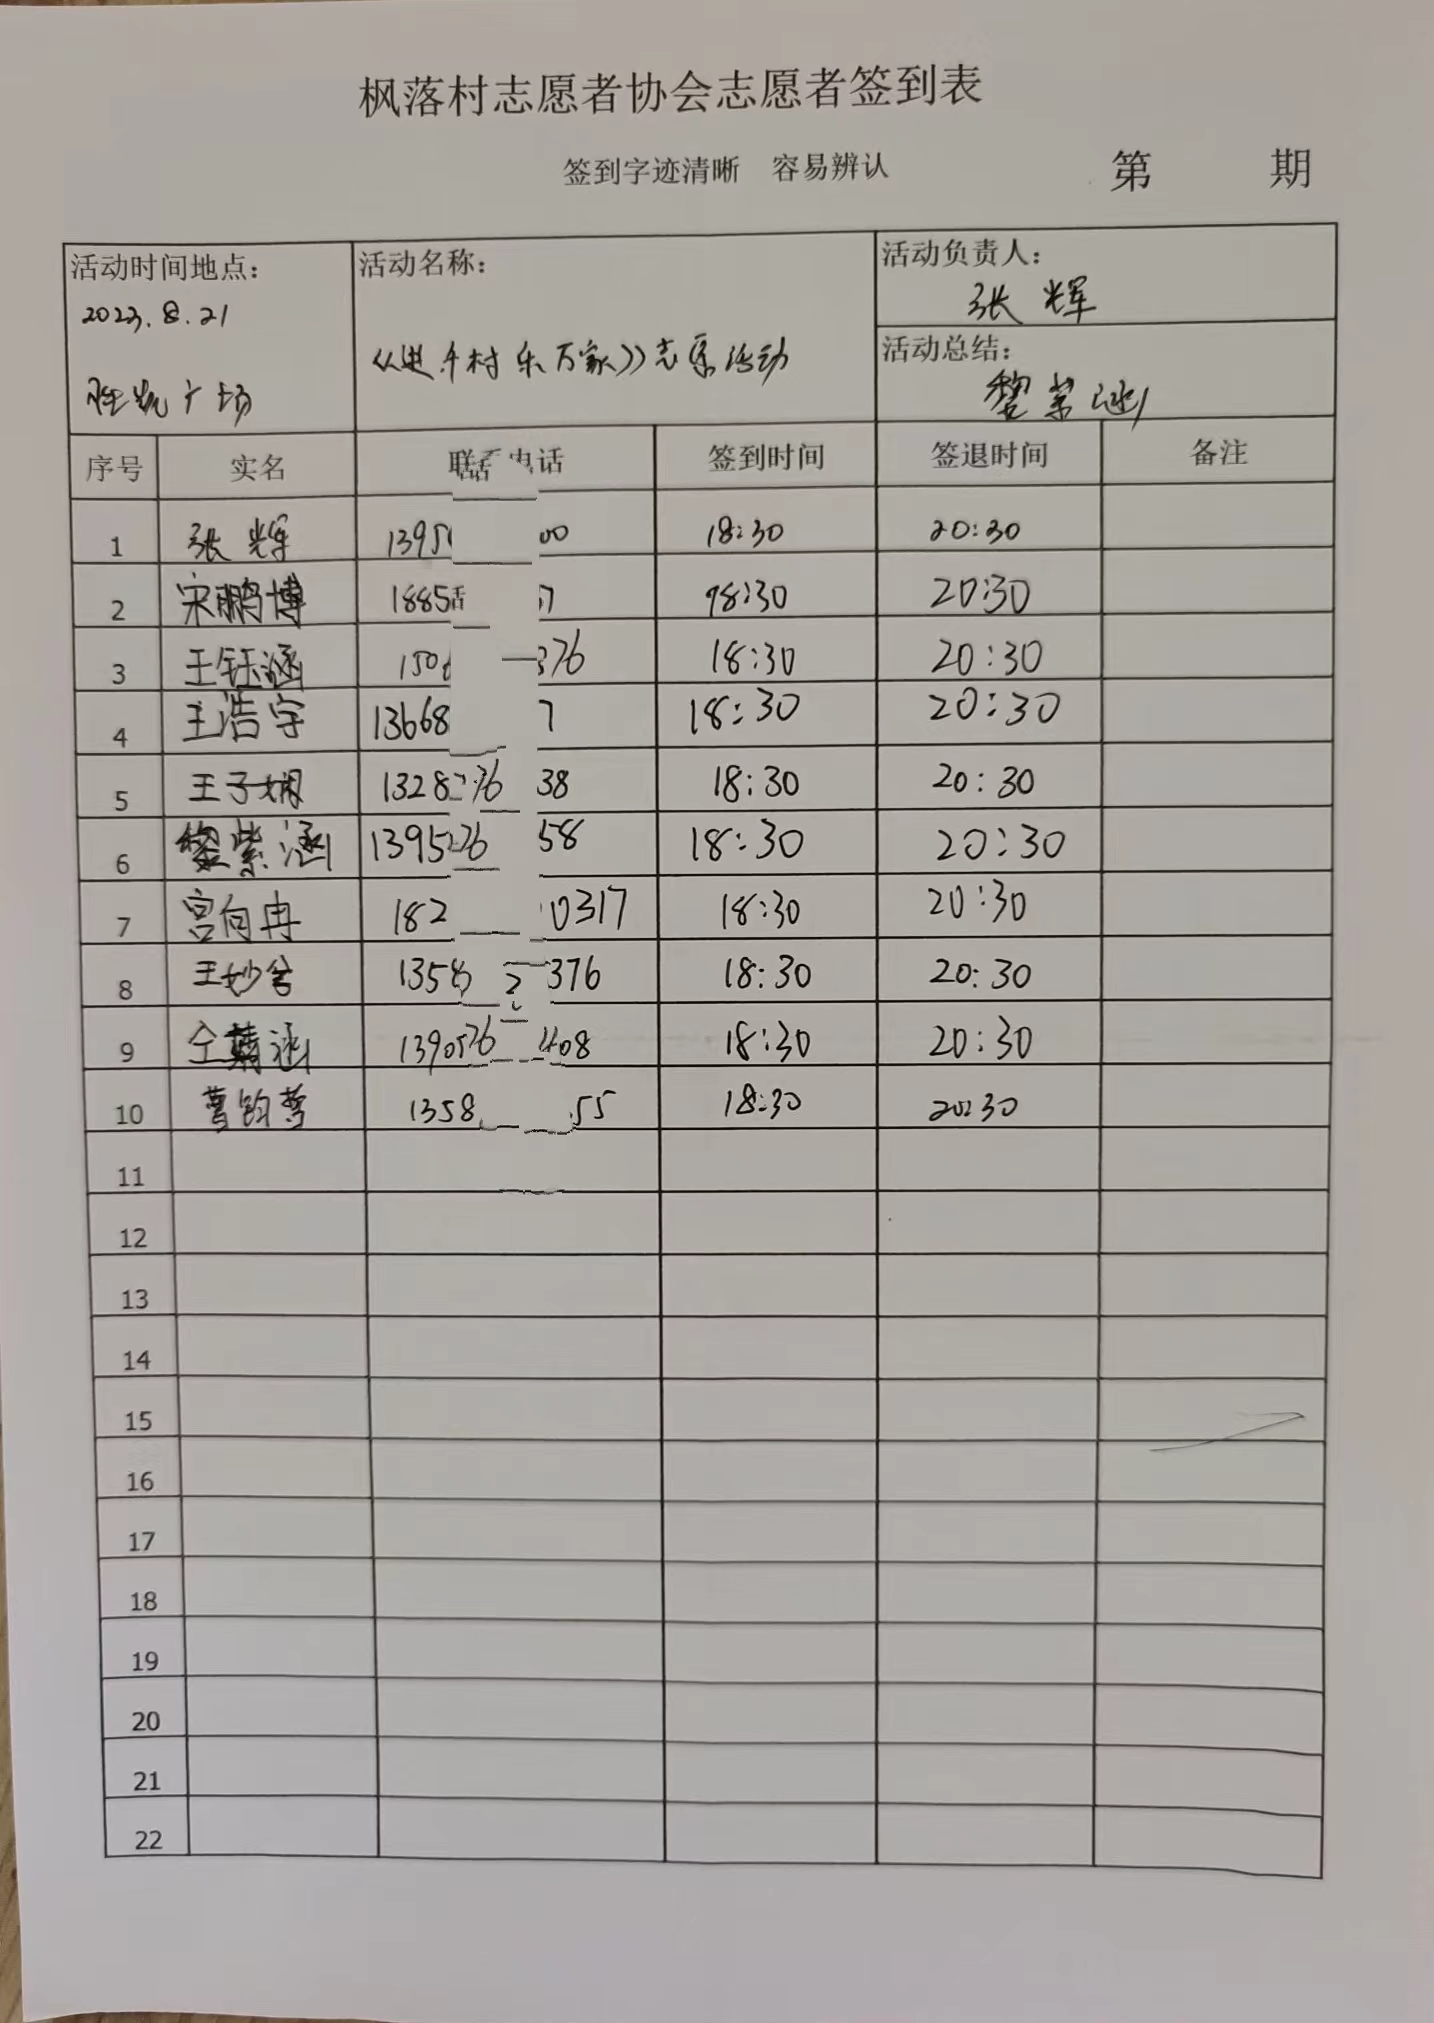 枫落村志愿者协会志愿者签到表
签到字迹清晰 容易辨认 第 期
活动时间地点：
2023.8.21
广场
活动名称：
《进千村乐万家》志愿活动
活动负责人：
张辉
活动总结：
黎紫涵
序号 实名 联系电话 签到时间 签退时间 备注
1 张辉 1395 00 18:30 20:30
2 宋鹏博 1885 7 18:30 20:30
3 王钰涵 150 376 18:30 20:30
4 王浩宇 13668 7 18:30 20:30
5 王子娴 1328 38 18:30 20:30
6 黎紫涵 1395 58 18:30 20:30
7 宫向冉 182 0317 18:30 20:30
8 王妙兮 1358 376 18:30 20:30
9 仝涵 1390 408 18:30 20:30
10 曹钧哲 1358 55 18:30 20:30
11
12
13
14
15
16
17
18
19
20
21
22